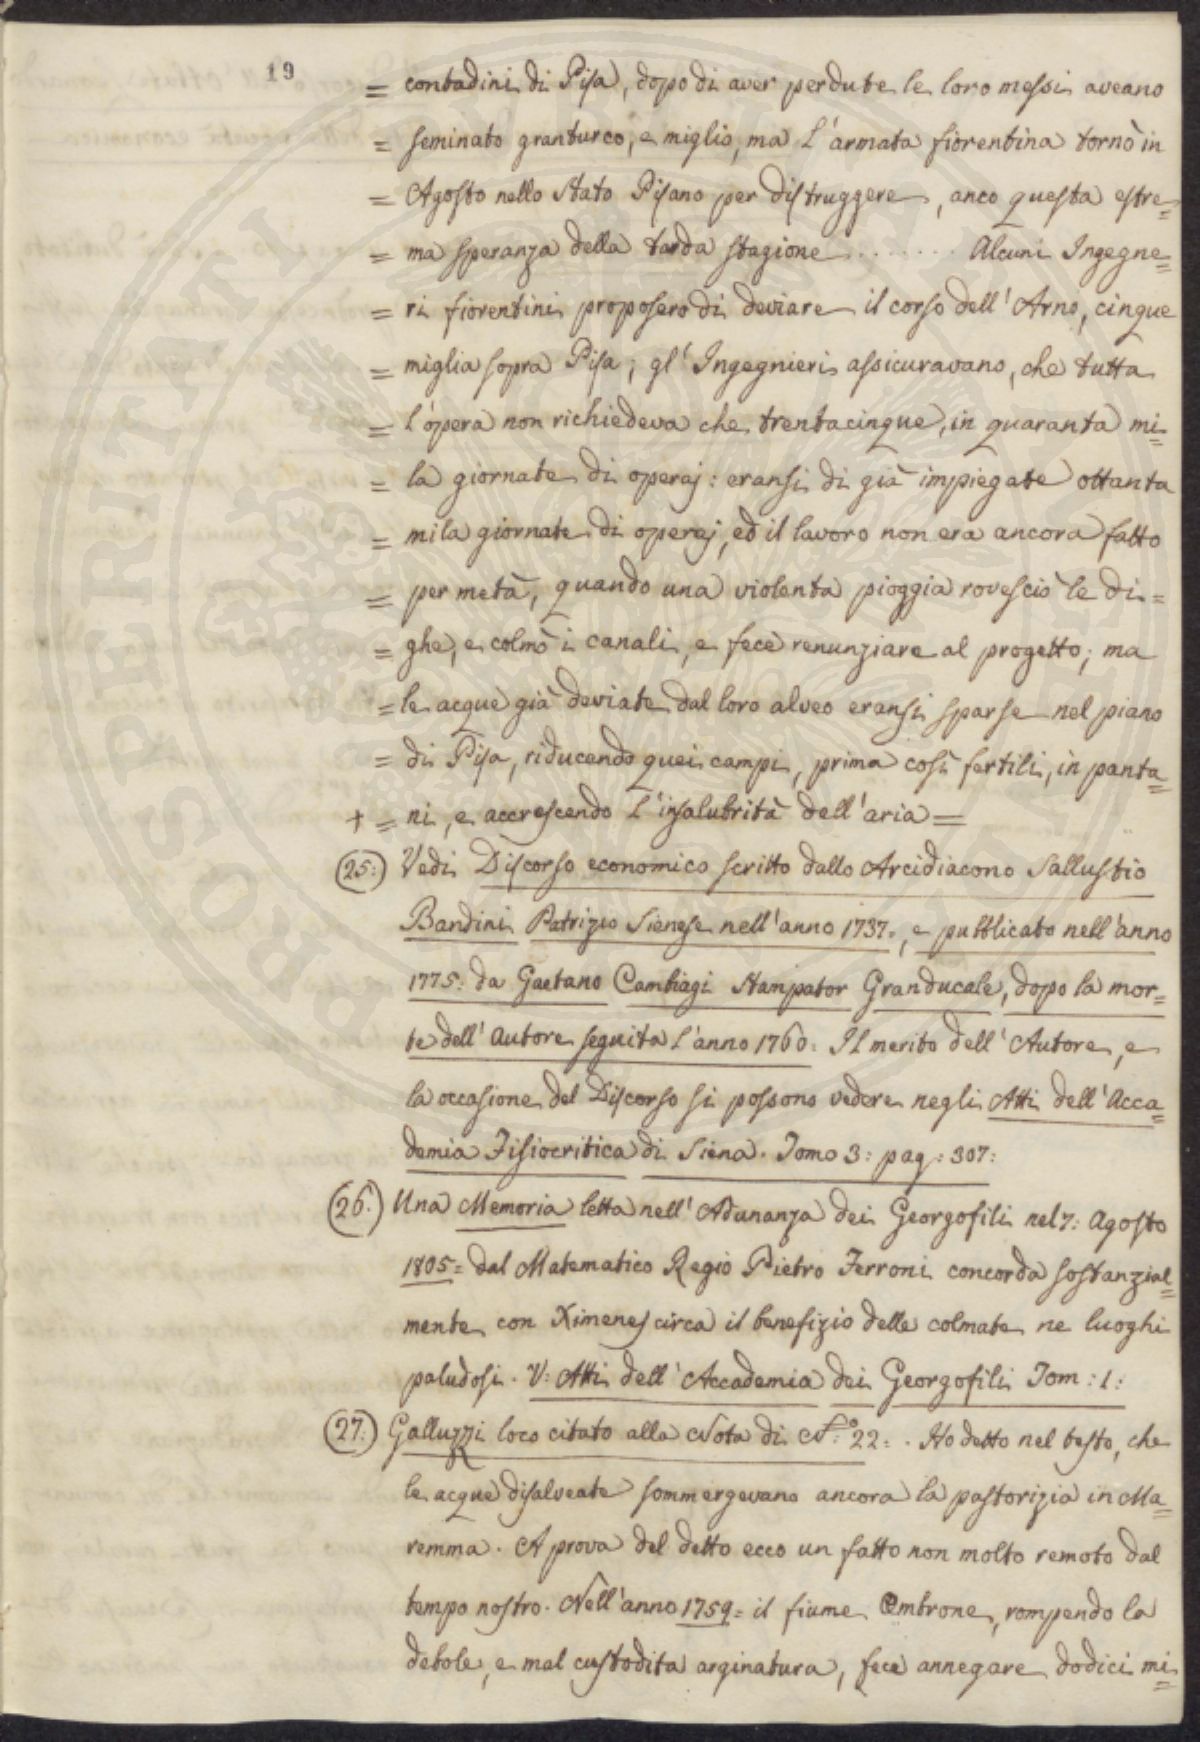 19
= contadini di Pisa, dopo di aver perdute le loro messi aveano
= seminato granturco, e miglio, ma l'armata fiorentina tornò in
= Agosto nello Stato Pisano per distruggere, anco questa estre=
= ma speranza della tarda stagione ........ Alcuni Ingegne=
= ri fiorentini proposero di deviare il corso dell'Arno, cinque
= miglia sopra Pisa; gl'Ingegnieri assicuravano, che tutta
= l'opera non richiedeva che trentacinque, in quaranta mi=
= la giornate di operaj: eransi di già impiegate ottanta
= mila giornate di operaj, ed il lavoro non era ancora fatto
= per metà, quando una violenta pioggia rovesciò le di=
= ghe, e colmò i canali, e fece renunziare al progetto; ma
= le acque già deviate dal loro alveo eransi sparse nel piano
= di Pisa, riducendo quei campi, prima così fertili, in panta=
+ = ni, e accrescendo l'insalubrità dell'aria =
(25:) Vedi Discorso economico scritto dallo Arcidiacono Sallustio
Bandini Patrizio Sienese nell'anno 1737., e pubblicato nell'anno
1775: da Gaetano Cambiagi Stampator Granducale, dopo la mor=
te dell'Autore seguita l'anno 1760: Il merito dell'Autore, e
la occasione del Discorso si possono vedere negli Atti dell'Acca=
demia Fisiocritica di Siena. Tomo 3: pag: 307:
(26.) Una Memoria letta nell'Adunanza dei Georgofili nel 7: Agosto
1805= dal Matematico Regio Pietro Ferroni concorda sostanzial=
mente con Ximenes circa il benefizio delle colmate ne luoghi
paludosi. V: Atti dell'Accademia dei Georgofili Tom: 1:
(27:) Galluzzi loco citato alla Nota di N:º 22=. Ho detto nel testo, che
le acque disalveate sommergevano ancora la pastorizia in Ma=
remma. A prova del detto ecco un fatto non molto remoto dal
tempo nostro. Nell'anno 1759= il fiume Ombrone, rompendo la
debole, e mal custodita arginatura, fece annegare dodici mi=
PROSPERITATI